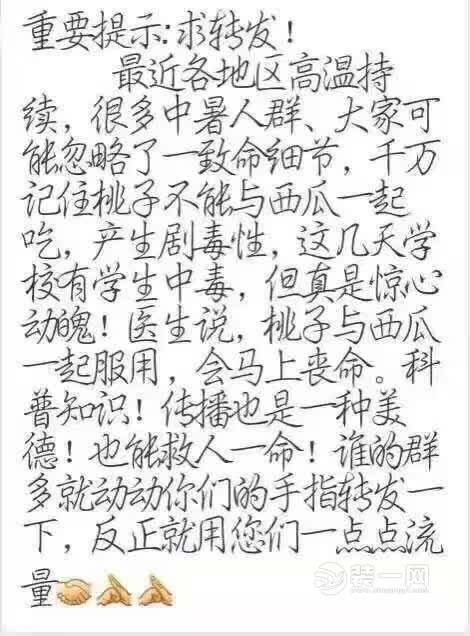 重要提示:求转发！
最近各地区高温持
续，很多中暑人群、大家可
能忽略了一致命细节，千万
记住桃子不能与西瓜一起
吃，产生剧毒性，这几天学
校有学生中毒，但真是惊心
动魄！医生说，桃子与西瓜
一起服用，会马上丧命。科
普知识！传播也是一种美
德！也能救人一命！谁的群
多就动动你们的手指转发一
下，反正就用您们一点点流
量
装一网